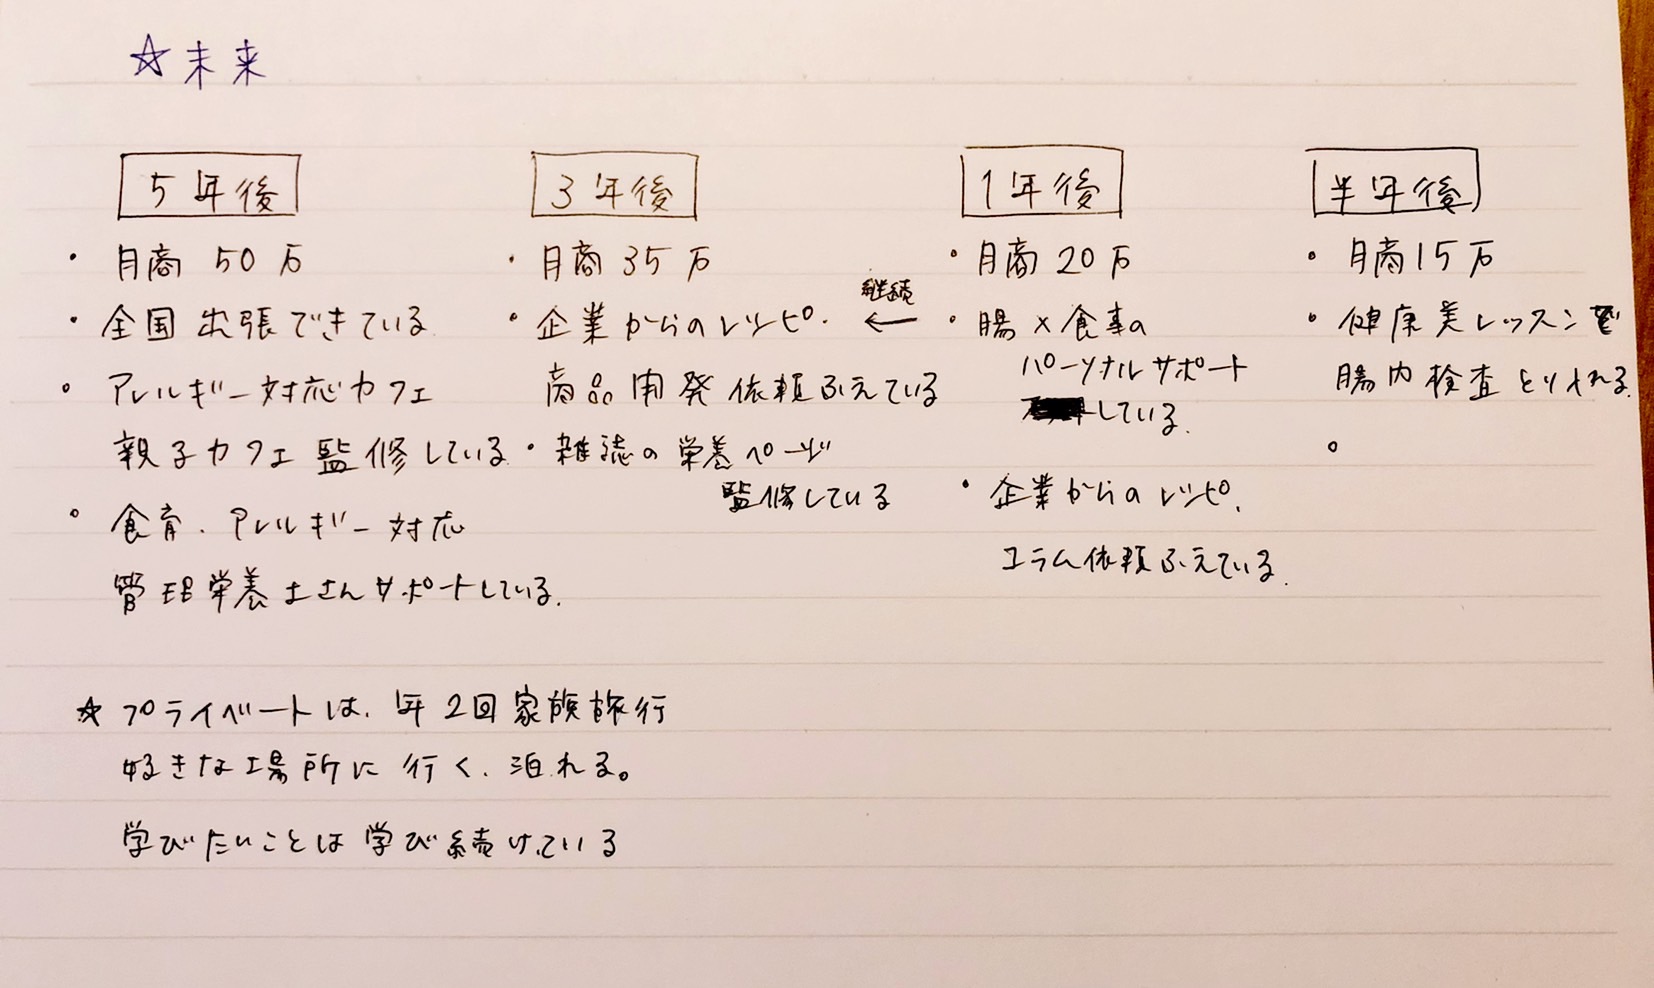 ☆未来
5年後
・月商 50万
・全国出張できている
・アレルギー対応カフェ
親子カフェ監修している
・食育.アレルギー対応
管理栄養士さんサポートしている.
3年後
・月商35万
・企業からのレシピ.
商品開発依頼ふえている
・雑誌の栄養ページ
監修している
継続
←
1年後
・月商20万
・腸×食事の
パーソナルサポート
している.
・企業からのレシピ.
コラム依頼ふえている.
半年後
・月商15万
・健康美レッスンで
腸内検査とりいれる.
・
☆プライベートは、年2回家族旅行
好きな場所に行く、泊れる。
学びたいことは学び続けている